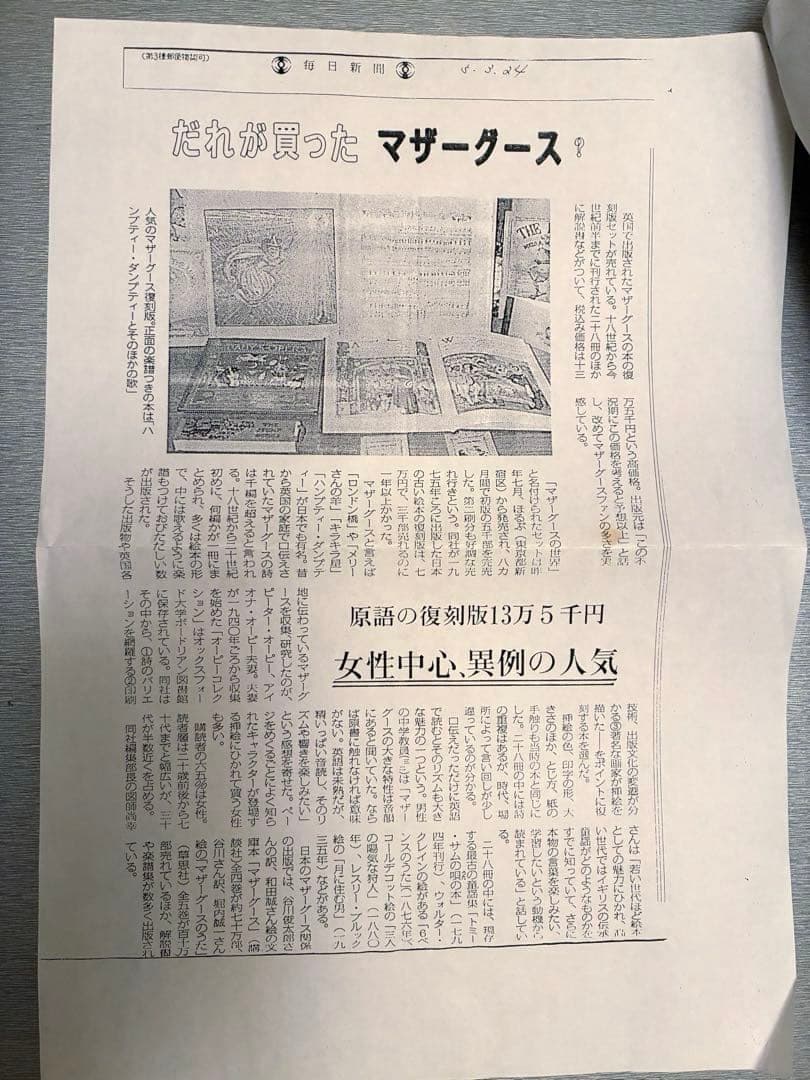 (第3種郵便物認可)
毎日新聞
5.3.24
だれが買った マザーグース?
英国で出版されたマザーグースの本の復
刻版セットが売れている。十八世紀から今
世紀前半までに刊行された二十八冊のほか
に解説書などがついて、税込み価格は十三
万五千円という高価格。出版元は「この不
況期にこの価格を考えると予想以上」と話
し、改めてマザーグースファンの多さを実
感している。
人気のマザーグース復刻版。正面の楽譜つきの本は「ハ
ンプティー・ダンプティーとそのほかの歌」
原語の復刻版13万5千円
女性中心、異例の人気
「マザーグースの世界」
と名付けられたセットは昨
年七月、ほるぷ(東京都新
宿区)から発売され、八カ
月間で初版の五千部を完売
した。第二刷分も好調な売
れ行きという。同社が一九
七五年ごろに出版した日本
の古い絵本の復刻版は、七
万円で、三千部売れるのに
一年以上かかった。
マザーグースと言えば
「ロンドン橋」や「メリー
さんの羊」「キラキラ星」
「ハンプティー・ダンプテ
ィー」が日本でも有名。昔
から英国の家庭で口伝えさ
れていたマザーグースの詩
は千編を超えると言われ
る。十八世紀から二十世紀
初めに、何編かが一冊にま
とめられ、多くは絵本の形
で、中には歌えるように楽
譜もつけておびただしい数
が出版された。
そうした出版物や英国各
地に伝わっているマザーグ
ースを収集、研究したのが、
ピーター・オーピー、アイ
オナ・オーピー夫妻。夫妻
が一九四〇年ごろから収集
を始めた「オーピーコレク
ション」はオックスフォー
ド大学ボードリアン図書館
に保存されている。同社は
その中から、①詩のバリエ
ーションを網羅する②印刷
技術、出版文化の変遷が分
かる③著名な画家が挿絵を
描いた――をポイントに復
刻する本を選んだ。
挿絵の色、印字の形、大
きさのほか、とじ方、紙の
手触りも当時の本と同じに
した。二十八冊の中には詩
の重複はあるが、時代、場
所によって言い回しが少し
違っているのが分かる。
口伝えだっただけに英語
で読むとそのリズムも大き
な魅力の一つという。男性
の中学教員(三二)は「マザー
グースの大きな特性は音韻
にあると聞いていた。なら
ば原書に触れなければ意味
がない。英語は未熟だが、
精いっぱい音読し、そのリ
ズムや響きを楽しみたい」
という感想を寄せた。ペー
ジをめくるごとによく知ら
れたキャラクターが登場す
る挿絵にひかれて買う女性
も多い。
購読者の六五%は女性。
読者層は二十歳前後から七
十代までと幅広いが、三十
代が半数近くを占める。
同社編集部長の医師尚幸
さんは「若い世代ほど絵本
としての魅力にひかれ、高
い世代ではイギリスの伝承
童謡がどのようなものかを
すでに知っていて、さらに
本物の言葉を楽しみたい、
学習したいという動機から
読まれている」と話してい
る。
二十八冊の中には、現存
する最古の童謡集「トミー
・サムの唄の本」(一七九
四年刊行)、ウォルター・
クレインの絵がある「6ペ
ンスのうた」(一八七六年)、
コールデコット絵の「三人
の陽気な狩人」(一八八〇
年)、レスリー・ブルック
絵の「月に住む男」(一九
三五年)などがある。
日本のマザーグース関係
の出版では、谷川俊太郎さ
んの訳、和田誠さん絵の文
庫本「マザーグース」(講
談社)全四巻が約七十万部、
谷川さん訳、堀内誠一さん
絵の「マザーグースのうた」
(草思社)全五巻が百十万
部売れているほか、解説書
や楽譜集が数多く出版され
ている。